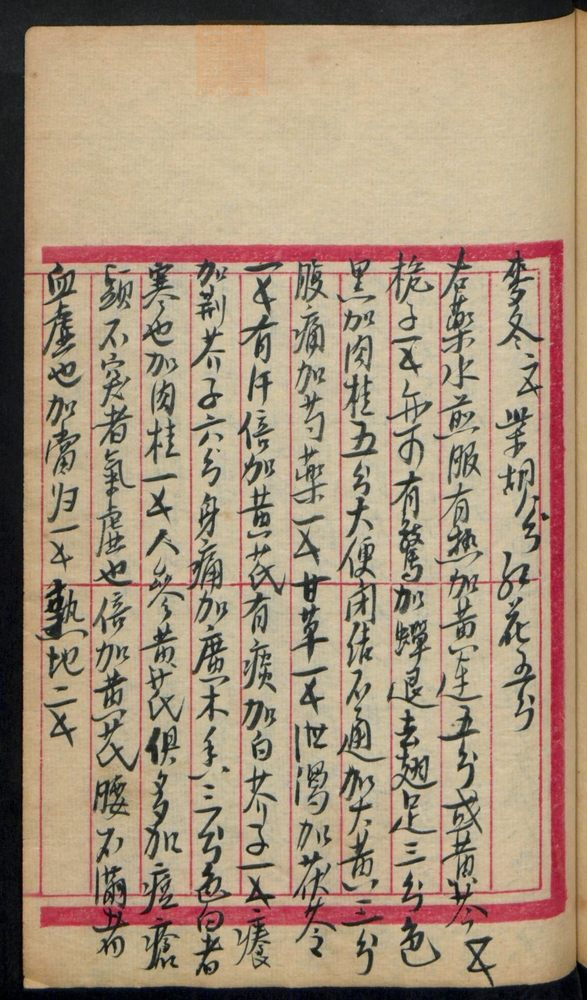 麥冬二钱 柴胡八分 紅花五分
右藥水煎服有热加黄连五分或黄芩钱
梔子一钱亦可有驚加蟬退去翅足三分色
黑加肉桂五分大便闭结不通加大黄三分
腹痛加芍藥一钱甘草一钱泄瀉加茯苓
一钱有汗倍加黄芪有痰加白芥子一钱癢
加荆芥子六分身痛加廣木香三分色白者
寒也加肉桂一钱人參黄芪俱多加痘瘡
顶不突者氣虚也倍加黄芪腰不滿者
血虚也加當归一钱熟地二钱